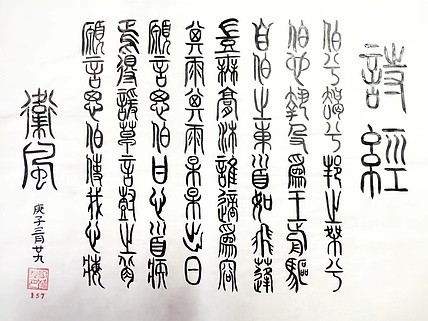 詩經
伯兮朅兮邦之桀兮
伯也執殳爲王前驅
自伯之東首如飛蓬
豈無膏沐誰適爲容
其雨其雨杲杲出日
願言思伯甘心首疾
焉得諼草言樹之背
願言思伯使我心痗
衛風
庚子三月廿九
157